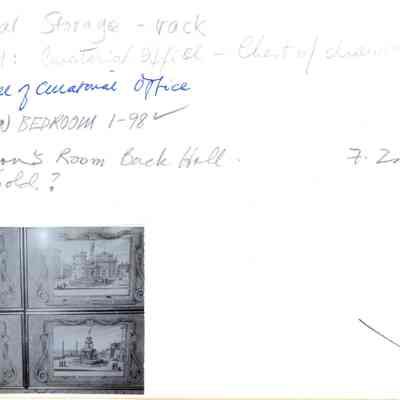 al Storage - rack
: Curatorial Office - Chest of drawer
of Curatorial Office
BEDROOM 1-98 ✓
's Room Back Hall.
7. 2
old?